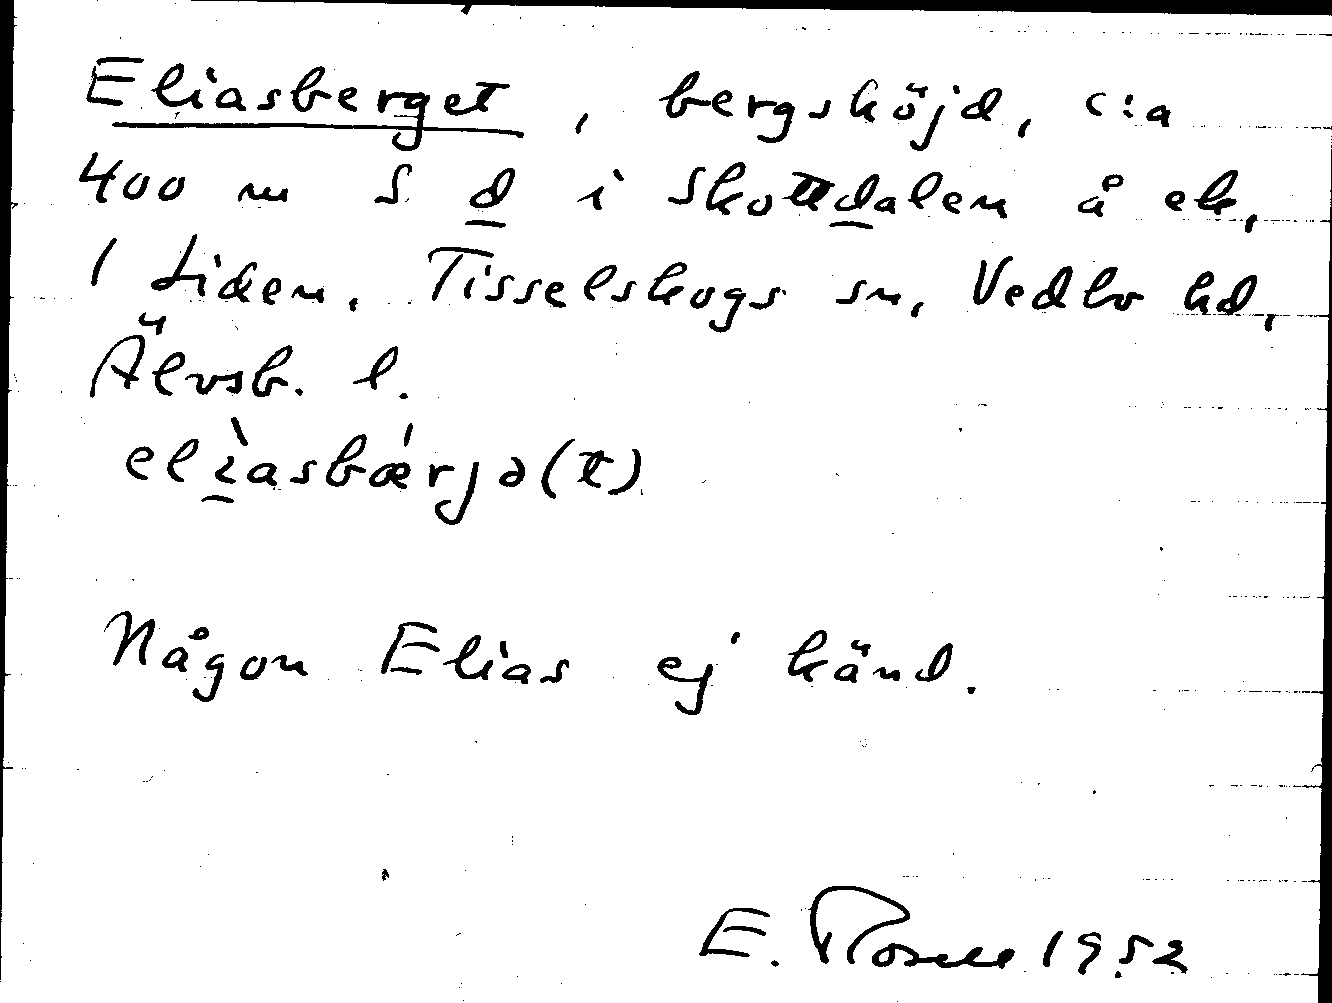 Eliasberget, bergshöjd, c:a
400 m S d i Skottdalen å ek,
1 Liden. Tisselskogs sn, Vedbo hd,
Älvsb. l.
elìasbǽrjə(t)
Någon Elias ej känd.
E. Rosell 1952